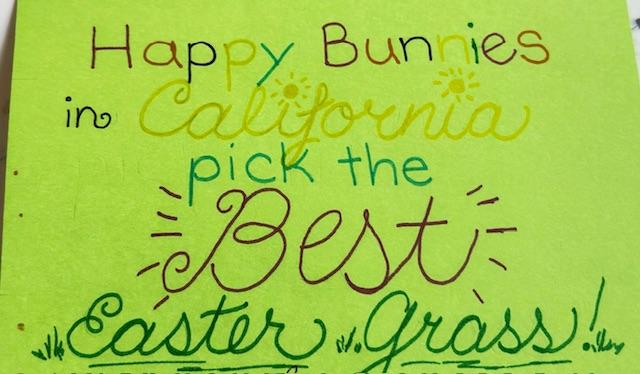 Happy Bunnies
in California
pick the
Best
Easter Grass!